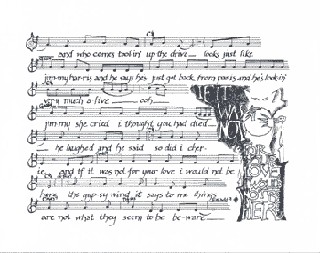 and who comes toolin' up the drive — looks just like
jimmy harris, and he says he's just got back from paris and he's lookin'
very much alive — ooh —
jimmy she cried i thought you had died
— he laughed and he said so did i cher-
ie and if it was not for your love i would not be
here the it says to me things
are not what they seem to be beware —
FOR
LOVE